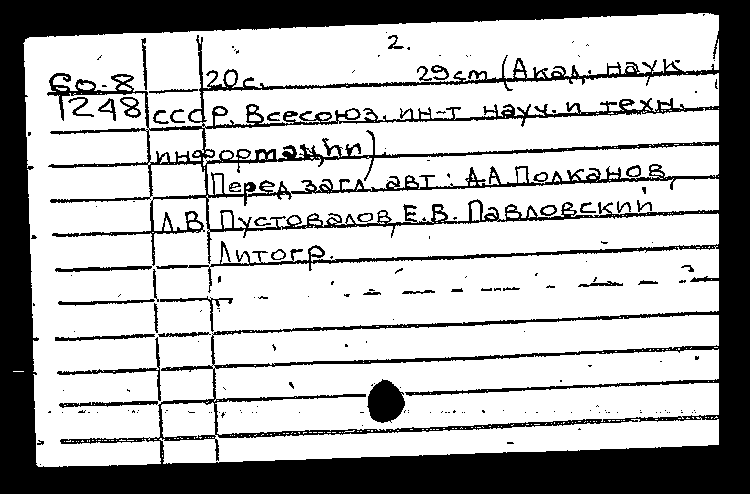 2.
60-8 20с. 29см (Акад. наук
1248 СССР. Всесоюз. ин-т науч. и техн.
информации)
Перед загл. авт: А.А. Полканов,
Л.В Пустовалов, Е.В. Павловский
Литогр.